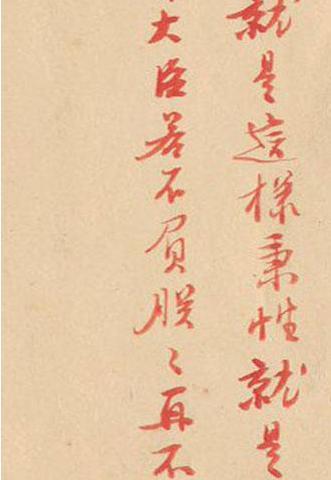 就是這樣秉性就是
大臣若不負朕〻再不